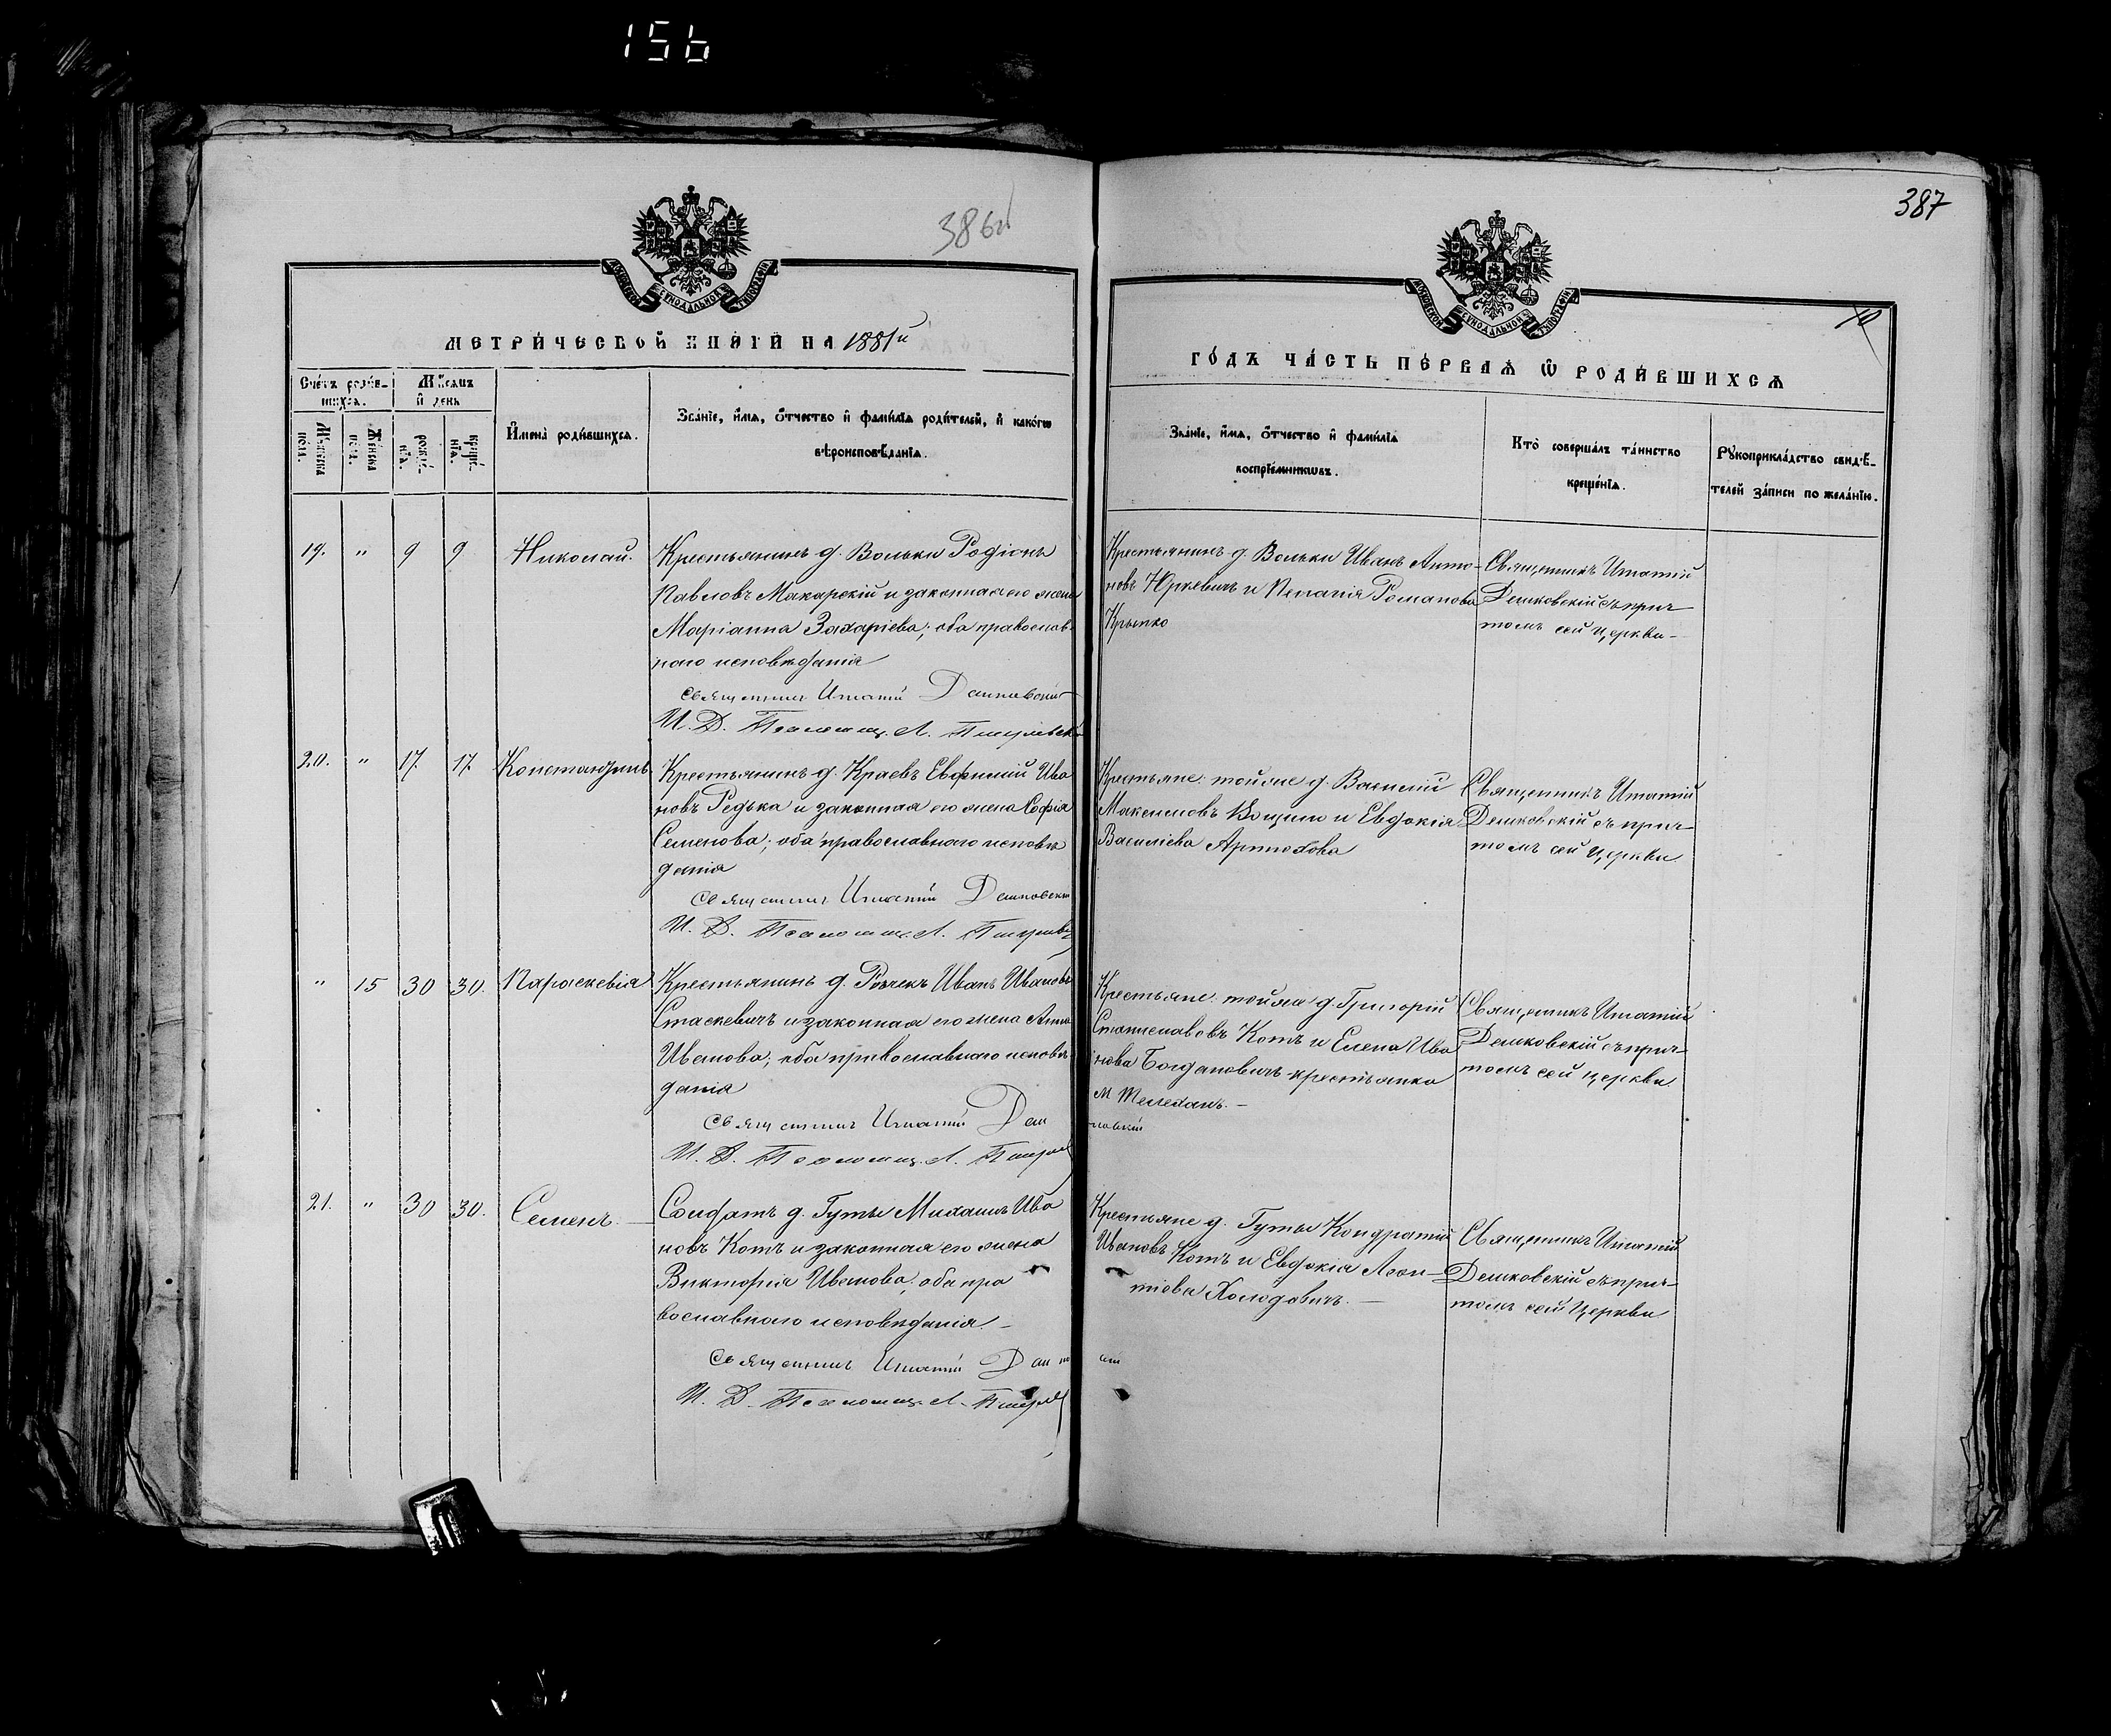 156
386об
387
10
МОСКОВСКОЙ СѴНОДАЛЬНОЙ ТѴПОГРАФІИ
МОСКОВСКОЙ СѴНОДАЛЬНОЙ ТѴПОГРАФІИ
МЕТРИ́ЧЕСКОЙ КНИ́ГИ НА 1881й
ГО́ДЪ ЧА́СТЬ ПЕ́РВАѦ Ѿ РОДИ́ВШИХСѦ
Сче́тъ роди́в-
шихсѧ.
Мѣ́сѧцъ
и҆ день
Мꙋ́жеска
по́ла.
Же́нска
по́ла.
рожде́-
нїѧ.
креще́-
нїѧ.
И҆мена̀ роди́вшихсѧ.
Зва́нїе, и҆́мѧ, ѻ҆́тчество и҆ фами́лїѧ роди́телей, и҆ како́гѡ
вѣроисповѣ́данїѧ.
Зва́нїе, и҆́мѧ, ѻ҆́тчество и҆ фами́лїѧ
воспрїе́мникѡвъ.
Кто̀ соверша́лъ та́инство
креще́нїѧ.
Рꙋкоприкла́дство свидѣ́-
телей за́писи по жела́нїю.
19. " 9 9 Николай.
Крестьянинъ д. Вольки Родіонъ
Павловъ Макарскій и законная его жена
Маріанна Захаріева; оба православ-
наго исповѣданія
Священникъ Игнатій Дашковскій
И. Д. Псаломщ. Л.
Крестьянинъ д. Вольки Иванъ Анто-
новъ Юркевичъ и Пелагія Романова
Крытко
Священникъ Игнатій
Дешковскій съ прич-
томъ сей церкви-
20. " 17. 17. Константинъ
Крестьянинъ д. Краевъ Евфимій Ива
новъ Редька и законная его жена Софія
Семенова; оба православнаго исповѣ
данія
Священникъ Игнатій Дашковскій
И. Д. Псаломщ. Л.
Крестьяне тойже д. Василій
Максимовъ и Евдокія
Василіева Артюхова
Священникъ Игнатій
Дешковскій съ прич-
томъ сей церкви
" 15 30 30. Параскевія
Крестьянинъ д. Иванъ Ивановъ
Стаскевичъ и законная его жена Анна
Иванова; оба православнаго исповѣ
данія
Священникъ Игнатій Даш
ковскій
И. Д. Псаломщ. Л.
Крестьяне тойже д. Григорій
Станиславовъ Котъ и Елена Ива
нова Богдановичъ крестьянка
м Телеханъ.-
Священникъ Игнатій
Дешковскій съ прич-
томъ сей церкви.
21. " 30 30. Семенъ.
Солдатъ д. Гуты Михаилъ Ива
новъ Котъ и законная его жена
Викторія Иванова; оба пра
вославнаго исповѣданія.-
Священникъ Игнатій Дашк
И. Д. Псаломщ. Л.
Крестьяне д. Гуты Кондратій
Ивановъ Котъ и Евдокія Леон-
тіева Холодовичъ.-
Священникъ Игнатій
Дешковскій съ прич-
томъ сей Церкви